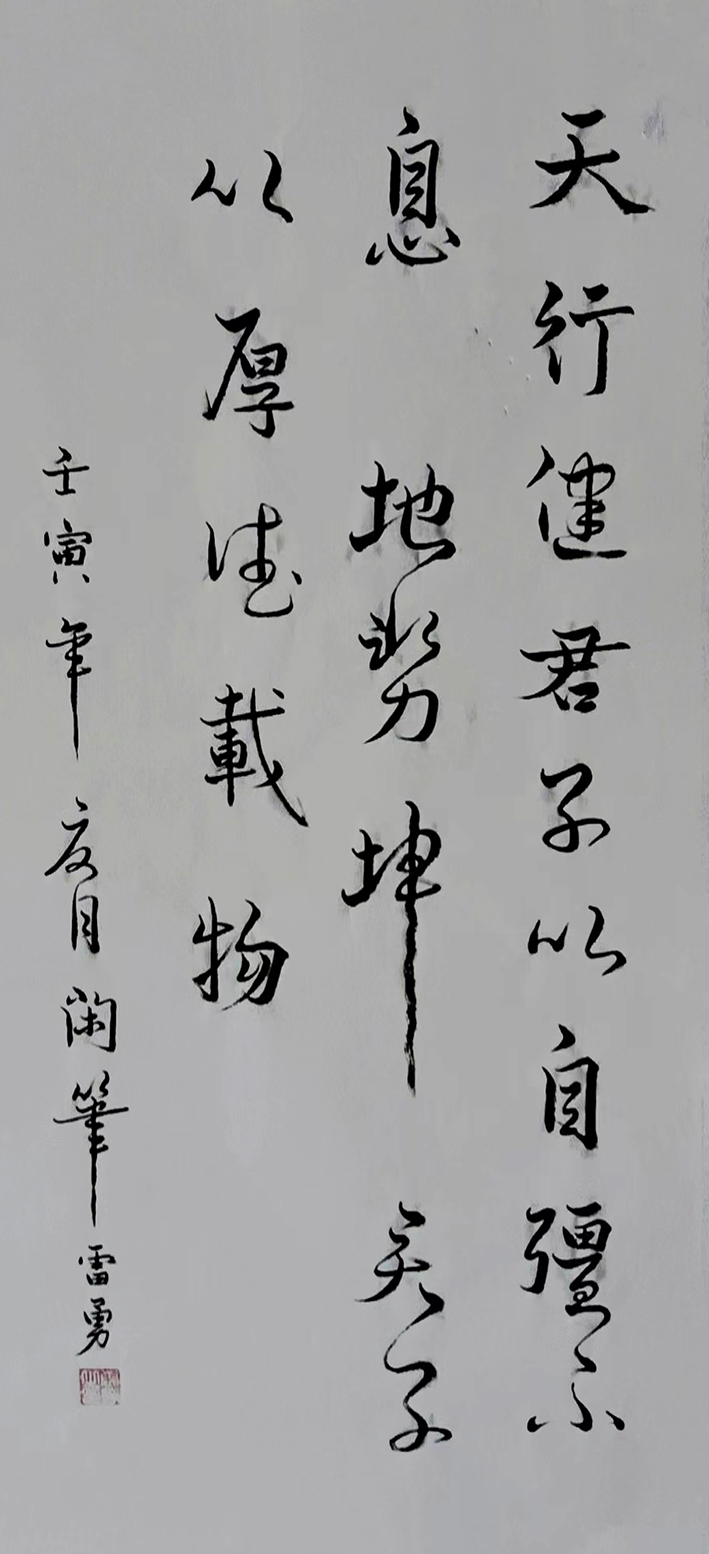 天行健君子以自彊不
息地势坤君子
以厚德載物
壬寅年夏月閑筆雷勇